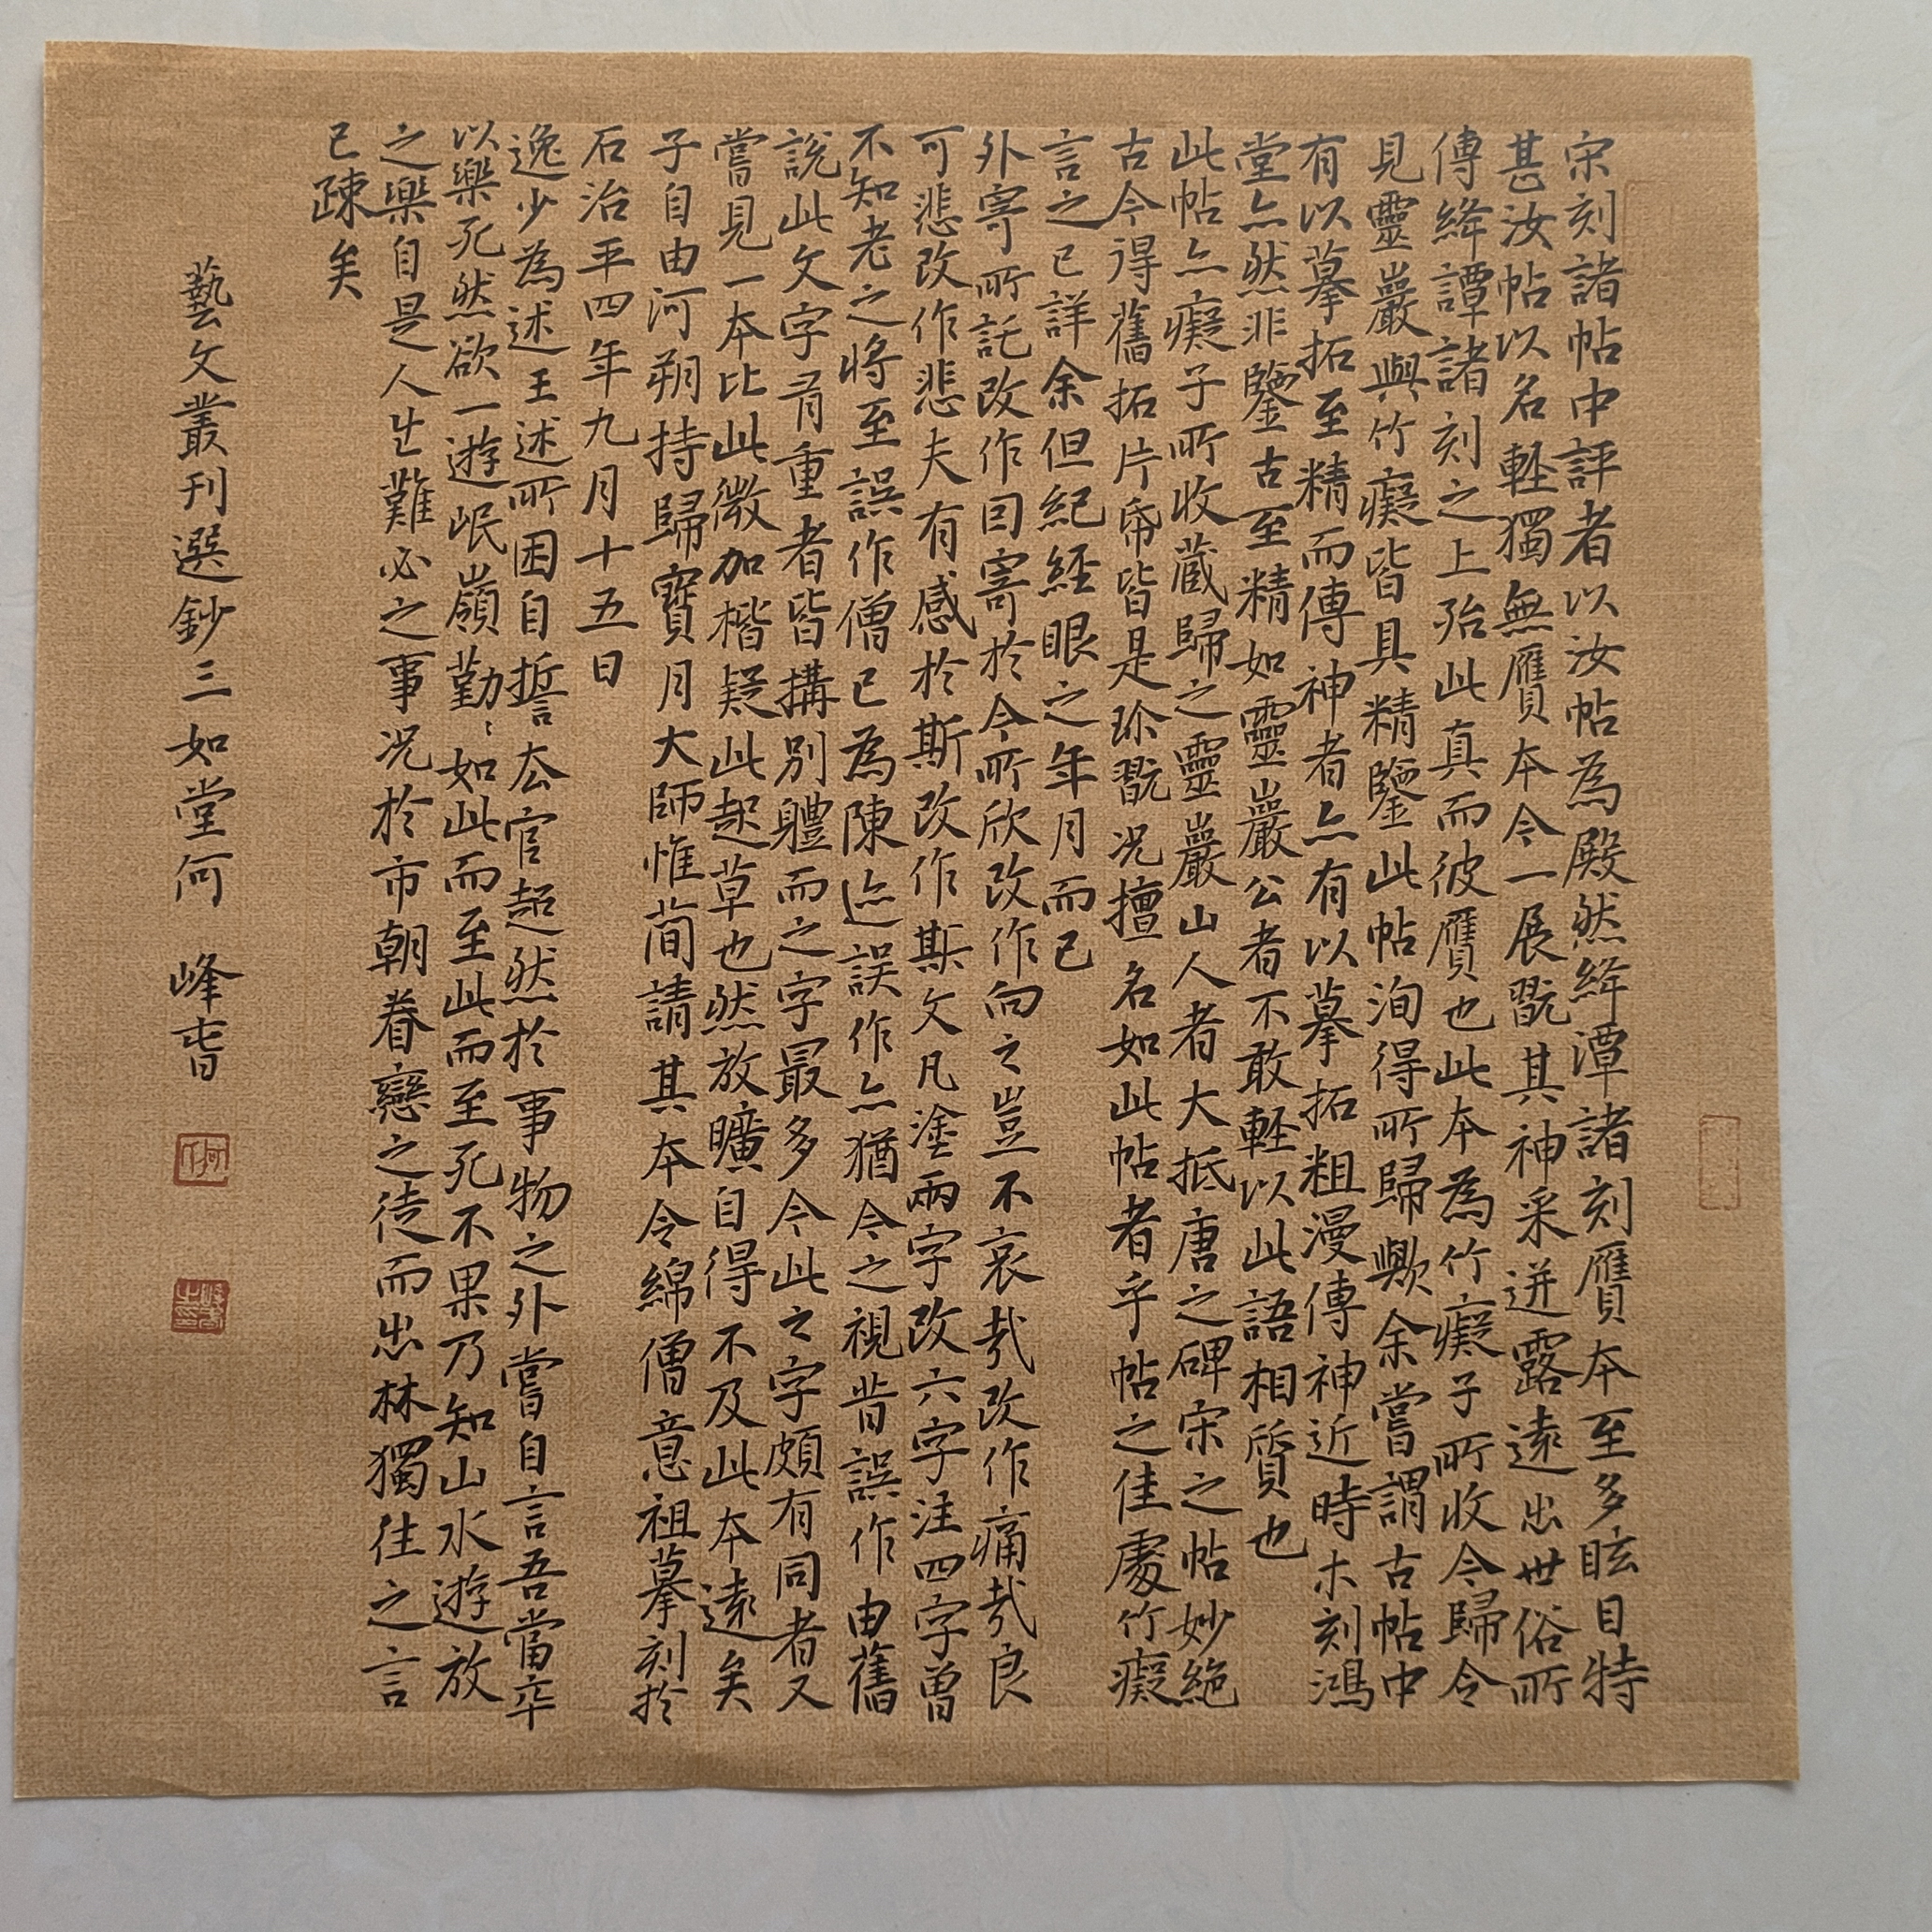 宋刻諸帖中評者以汝帖為殿然絳潭諸刻贗本至多眩目特
甚汝帖以名輕獨無贗本今一展翫其神采迸露遠出世俗所
傳絳譚諸刻之上殆此真而彼贗也此本為竹癡子所收今歸令
見靈巖與竹癡皆具精鑒此帖洵得所歸歟余嘗謂古帖中
有以摹拓至精而傳神者亦有以摹拓粗漫傳神近時木刻鴻
堂亦然非鑒古至精如靈巖公者不敢輕以此語相質也
此帖亦癡子所收藏歸之靈巖山人者大抵唐之碑宋之帖妙絶
古今得舊拓片帋皆是珎翫况擅名如此帖者乎帖之佳處竹癡
言之已詳余但紀經眼之年月而已
外寄所託改作因寄於今所欣改作向之豈不哀哉改作痛哉良
可悲改作悲夫有感於斯改作斯文凡塗兩字改六字注四字曾
不知老之將至誤作僧已為陳迹誤作亦猶今之視昔誤作由舊
說此文字有重者皆搆別體而之字最多今此之字頗有同者又
嘗見一本比此微加楷疑此起草也然放曠自得不及此本遠矣
子自由河朔持歸寶月大師惟蕳請其本令綿僧意祖摹刻於
石治平四年九月十五日
逸少為述王述所困自誓去官超然於事物之外嘗自言吾當卒
以樂死然欲一遊岷嶺勤〻如此而至此而至死不果乃知山水遊放
之樂自是人生難必之事况於市朝眷戀之徒而出林獨往之言
已疎矣
藝文叢刊選鈔三如堂何 峰書